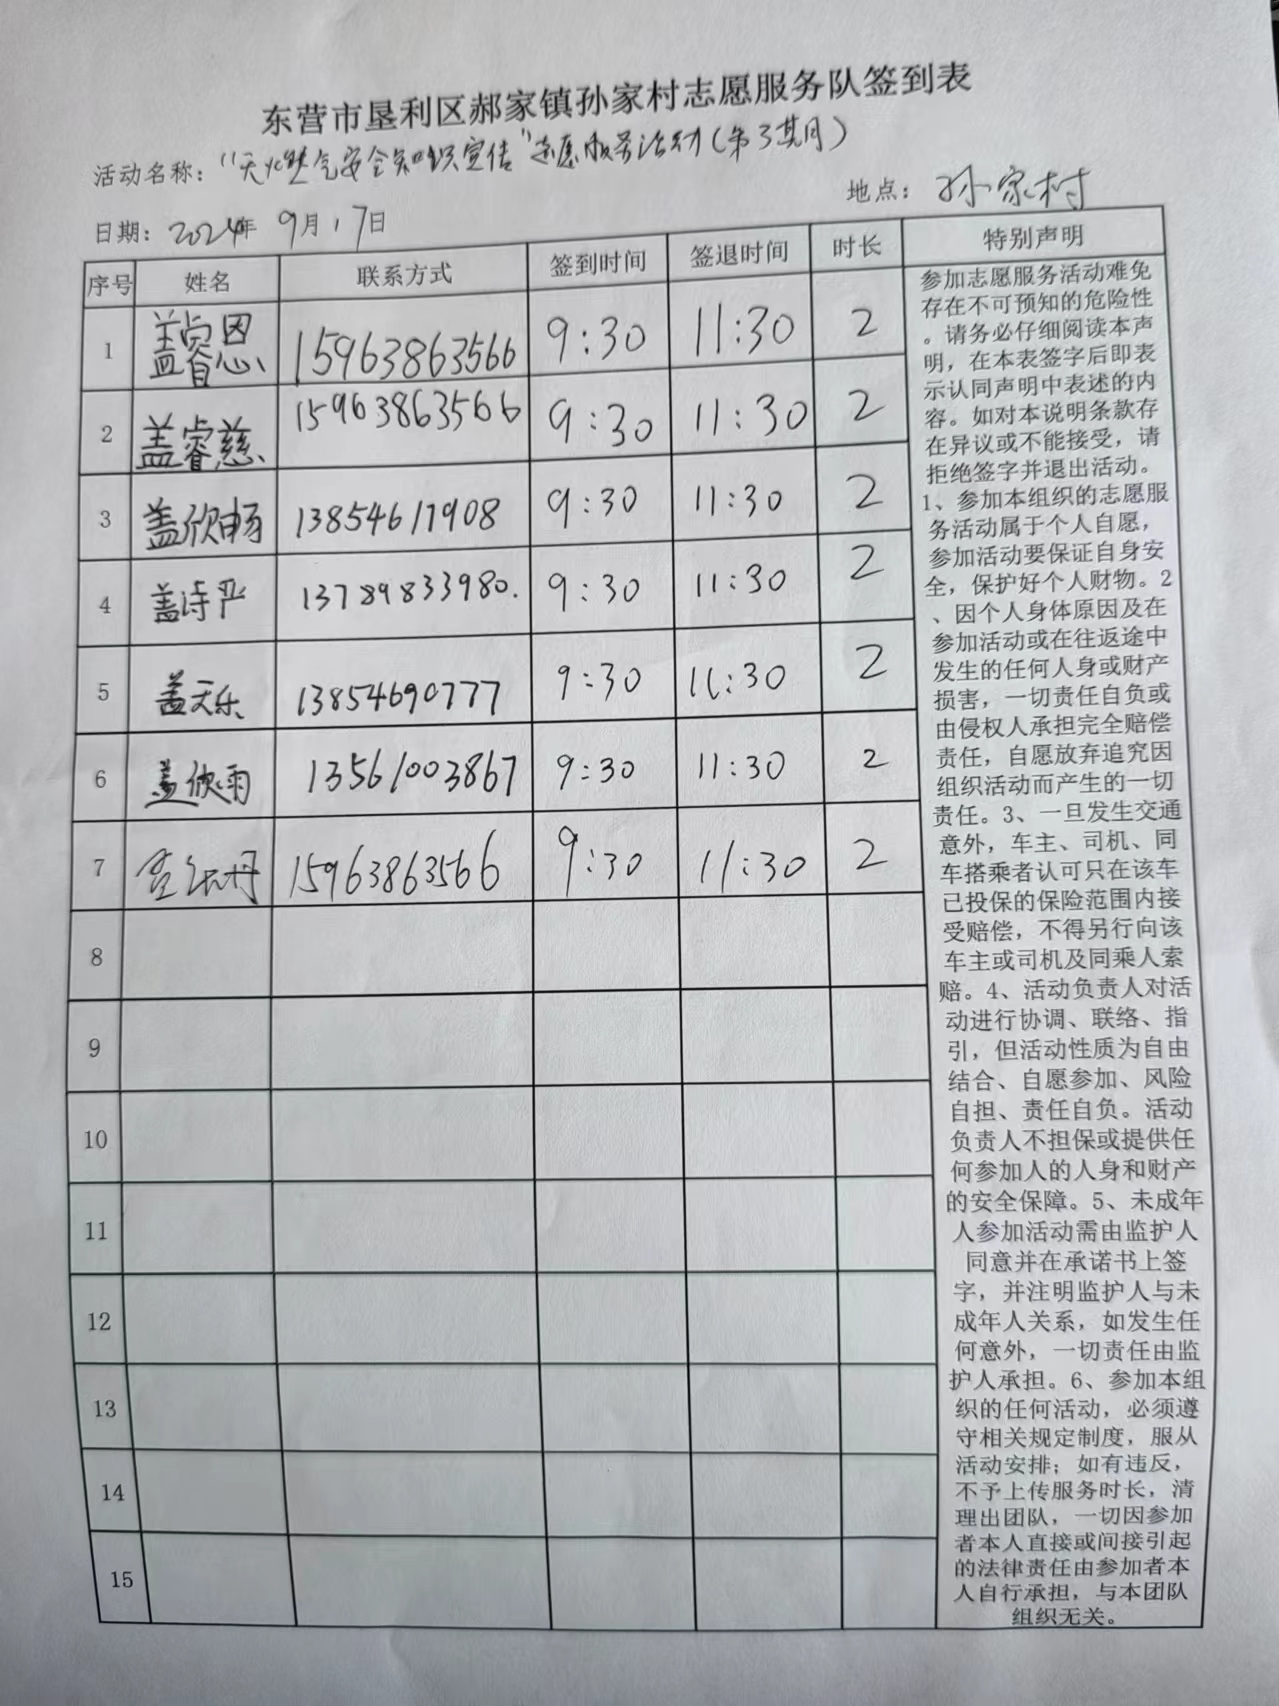 东营市垦利区郝家镇孙家村志愿服务队签到表
活动名称：“天燃气安全知识宣传”志愿服务活动（第3期）
日期：2024年 9月17日 地点：孙家村
序号 姓名 联系方式 签到时间 签退时间 时长 特别声明
1 盖睿恩 15963863566 9:30 11:30 2
2 盖睿慈 15963863566 9:30 11:30 2
3 盖欣畅 13854617908 9:30 11:30 2
4 盖诗严 13789833980. 9:30 11:30 2
5 盖天乐 13854690777 9:30 11:30 2
6 盖欣雨 13561003867 9:30 11:30 2
7 15963863566 9:30 11:30 2
8
9
10
11
12
13
14
15
参加志愿服务活动难免
存在不可预知的危险性
。请务必仔细阅读本声
明，在本表签字后即表
示认同声明中表述的内
容。如对本说明条款存
在异议或不能接受，请
拒绝签字并退出活动。
1、参加本组织的志愿服
务活动属于个人自愿，
参加活动要保证自身安
全，保护好个人财物。2
、因个人身体原因及在
参加活动或在往返途中
发生的任何人身或财产
损害，一切责任自负或
由侵权人承担完全赔偿
责任，自愿放弃追究因
组织活动而产生的一切
责任。3、一旦发生交通
意外，车主、司机、同
车搭乘者认可只在该车
已投保的保险范围内接
受赔偿，不得另行向该
车主或司机及同乘人索
赔。4、活动负责人对活
动进行协调、联络、指
引，但活动性质为自由
结合、自愿参加、风险
自担、责任自负。活动
负责人不担保或提供任
何参加人的人身和财产
的安全保障。5、未成年
人参加活动需由监护人
同意并在承诺书上签
字，并注明监护人与未
成年人关系，如发生任
何意外，一切责任由监
护人承担。6、参加本组
织的任何活动，必须遵
守相关规定制度，服从
活动安排；如有违反，
不予上传服务时长，清
理出团队，一切因参加
者本人直接或间接引起
的法律责任由参加者本
人自行承担，与本团队
组织无关。